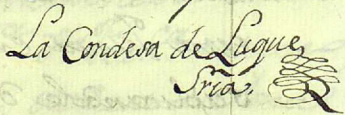 La Condesa de Luque
Sría.